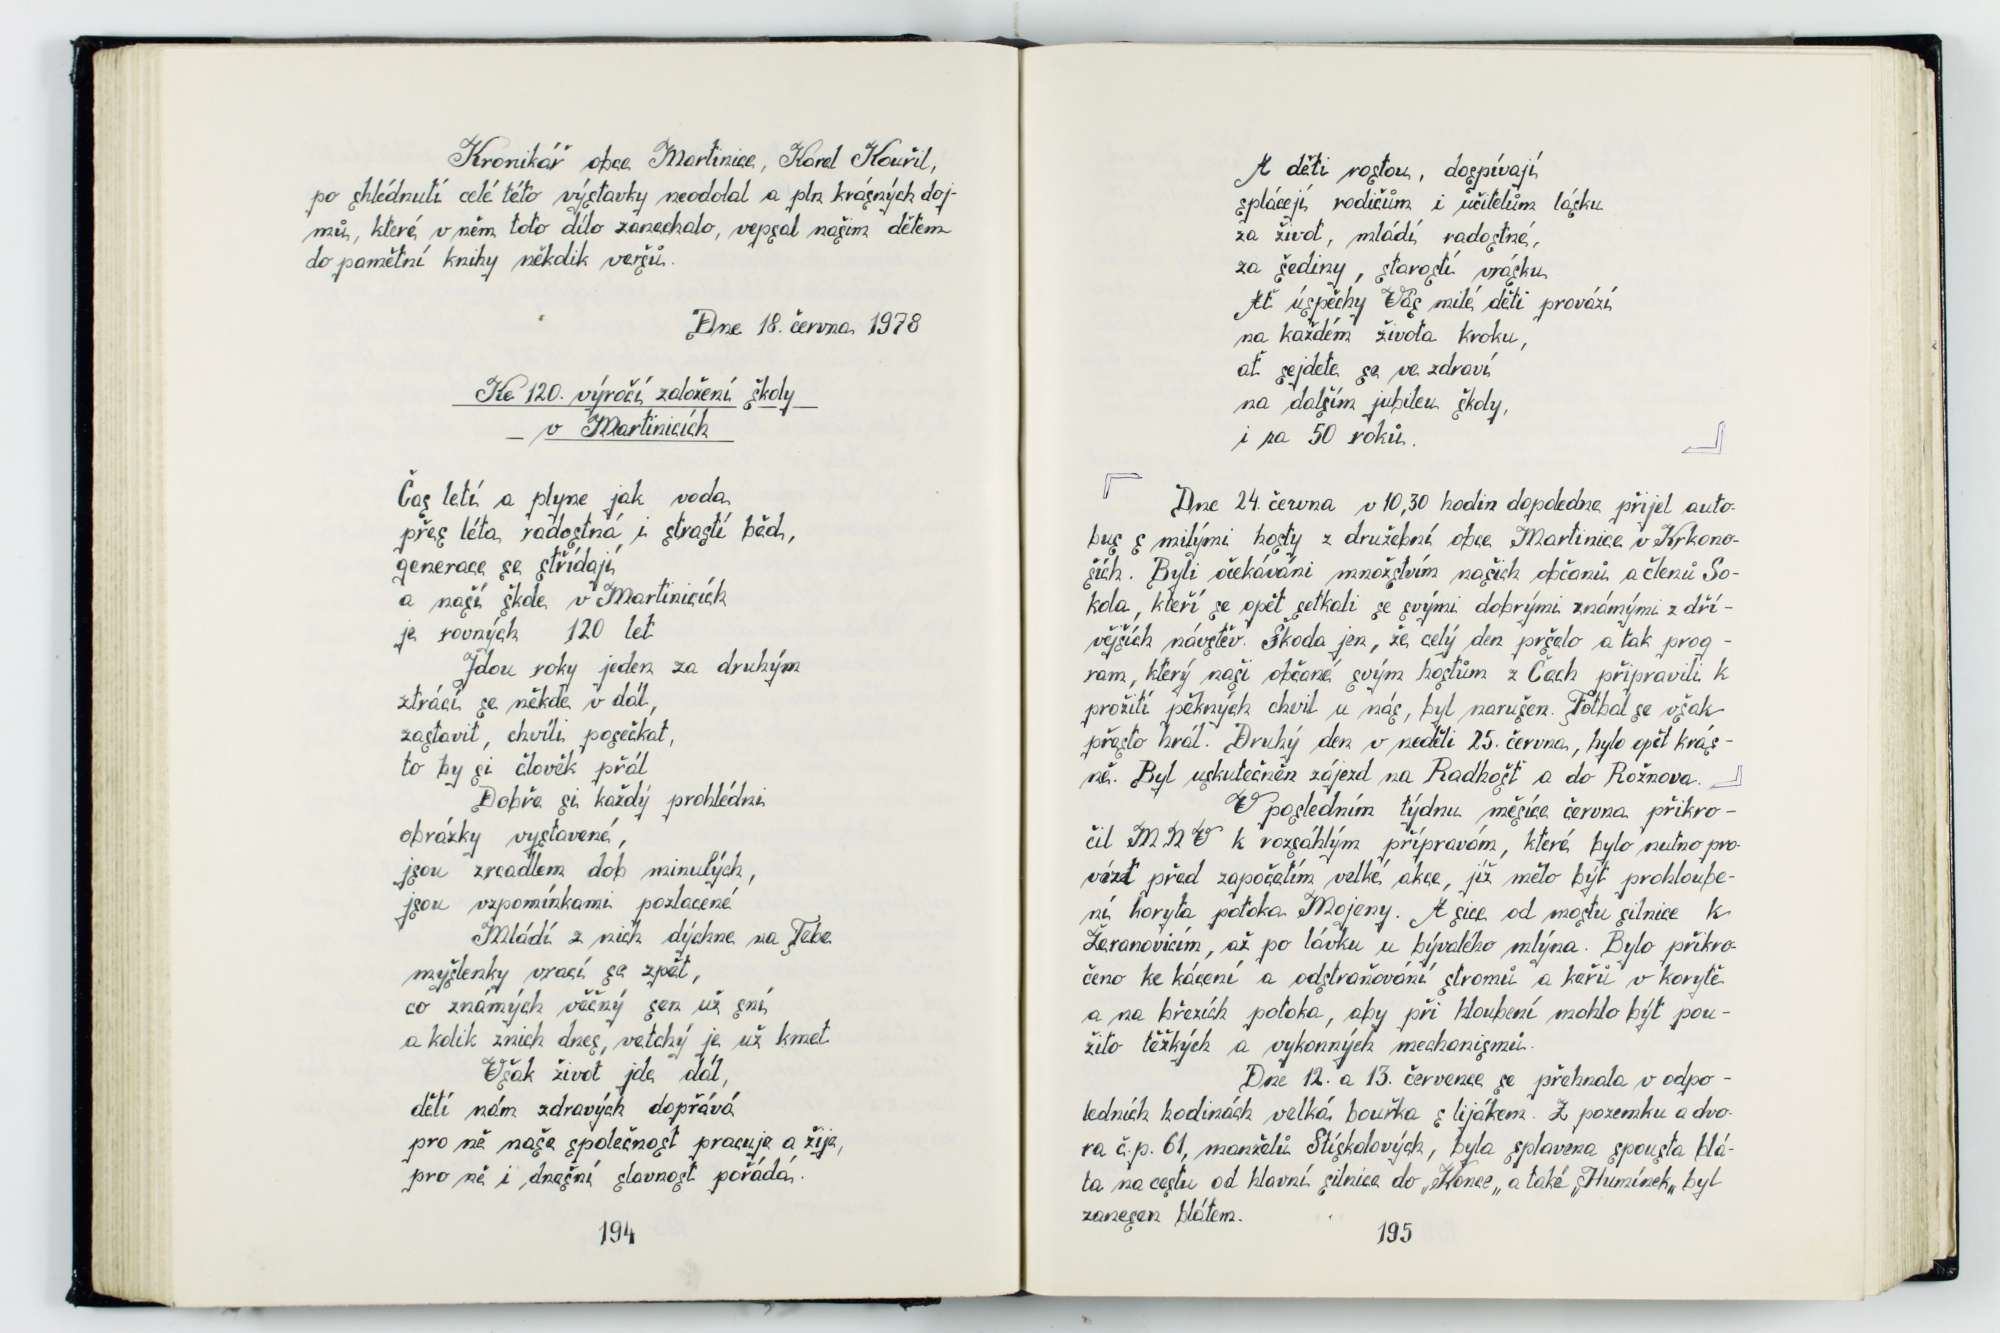 Kronikář obce Martinice, Karel Kouřil,
po shlédnutí celé této výstavky neodolal a pln krásných doj-
mů, které v něm toto dílo zanechalo, vepsal našim dětem
do pamětní knihy několik veršů.
Dne 18. června 1978
Ke 120. výročí založení školy
v Martinicích
Čas letí a plyne jak voda
přes léta radostná i strastí běd,
generace se střídají
a naší škole v Martinicích
je rovných 120 let
Jdou roky jeden za druhým
ztrácí se někde v dál,
zastavit, chvíli posečkat,
to by si člověk přál
Dobře si každý prohlédni
obrázky vystavené,
jsou zrcadlem dob minulých,
jsou vzpomínkami pozlacené
Mládí z nich dýchne na Tebe
myšlenky vrací se zpět,
co známých věčný sen už sní
a kolik znich dnes, vetchý je už kmet
Však život jde dál,
dětí nám zdravých dopřává
pro ně naše společnost pracuje a žije,
pro ně i dnešní slavnost pořádá.
194
A děti rostou, dospívají
splácejí rodičům i učitelům lásku
za život, mládí radostné,
za šediny, starostí vrásku
Ať úspěchy Vás milé děti provází
na každém života kroku,
ať sejdete se ve zdraví
na dalším jubileu školy,
i za 50 roků.
Dne 24. června v 10,30 hodin dopoledne přijel auto-
bus s milými hosty z družební obce Martinice v Krkono-
ších. Byli očekáváni množstvím našich občanů a členů So-
kola, kteří se opět setkali se svými dobrými známými z dří-
vějších návštěv. Škoda jen, že celý den pršelo a tak prog-
ram, který naši občané svým hostům z Čech připravili k
prožití pěkných chvil u nás, byl narušen. Fotbal se však
přesto hrál. Druhý den v neděli 25. června, bylo opět krás-
ně. Byl uskutečněn zájezd na Radhošť a do Rožnova.
V posledním týdnu měsíce června přikro-
čil MNV k rozsáhlým přípravám, které bylo nutno pro-
vézt před započetím velké akce, jíž mělo být prohloube-
ní koryta potoka Mojeny. A sice od mostu silnice k
Žeranovicím, až po lávku u bývalého mlýna. Bylo přikro-
čeno ke kácení a odstraňování stromů a keřů v korytě
a na březích potoka, aby při hloubení mohlo být pou-
žito těžkých a vykonných mechanismů.
Dne 12. a 13. července se přehnala v odpo-
ledních hodinách velká bouřka s lijákem. Z pozemku a dvo-
ra č.p. 61, manželů Stískalových, byla splavena spousta blá-
ta na cestu od hlavní silnice do „Konce„ a také „Humínek„ byl
zanesen blátem.
195